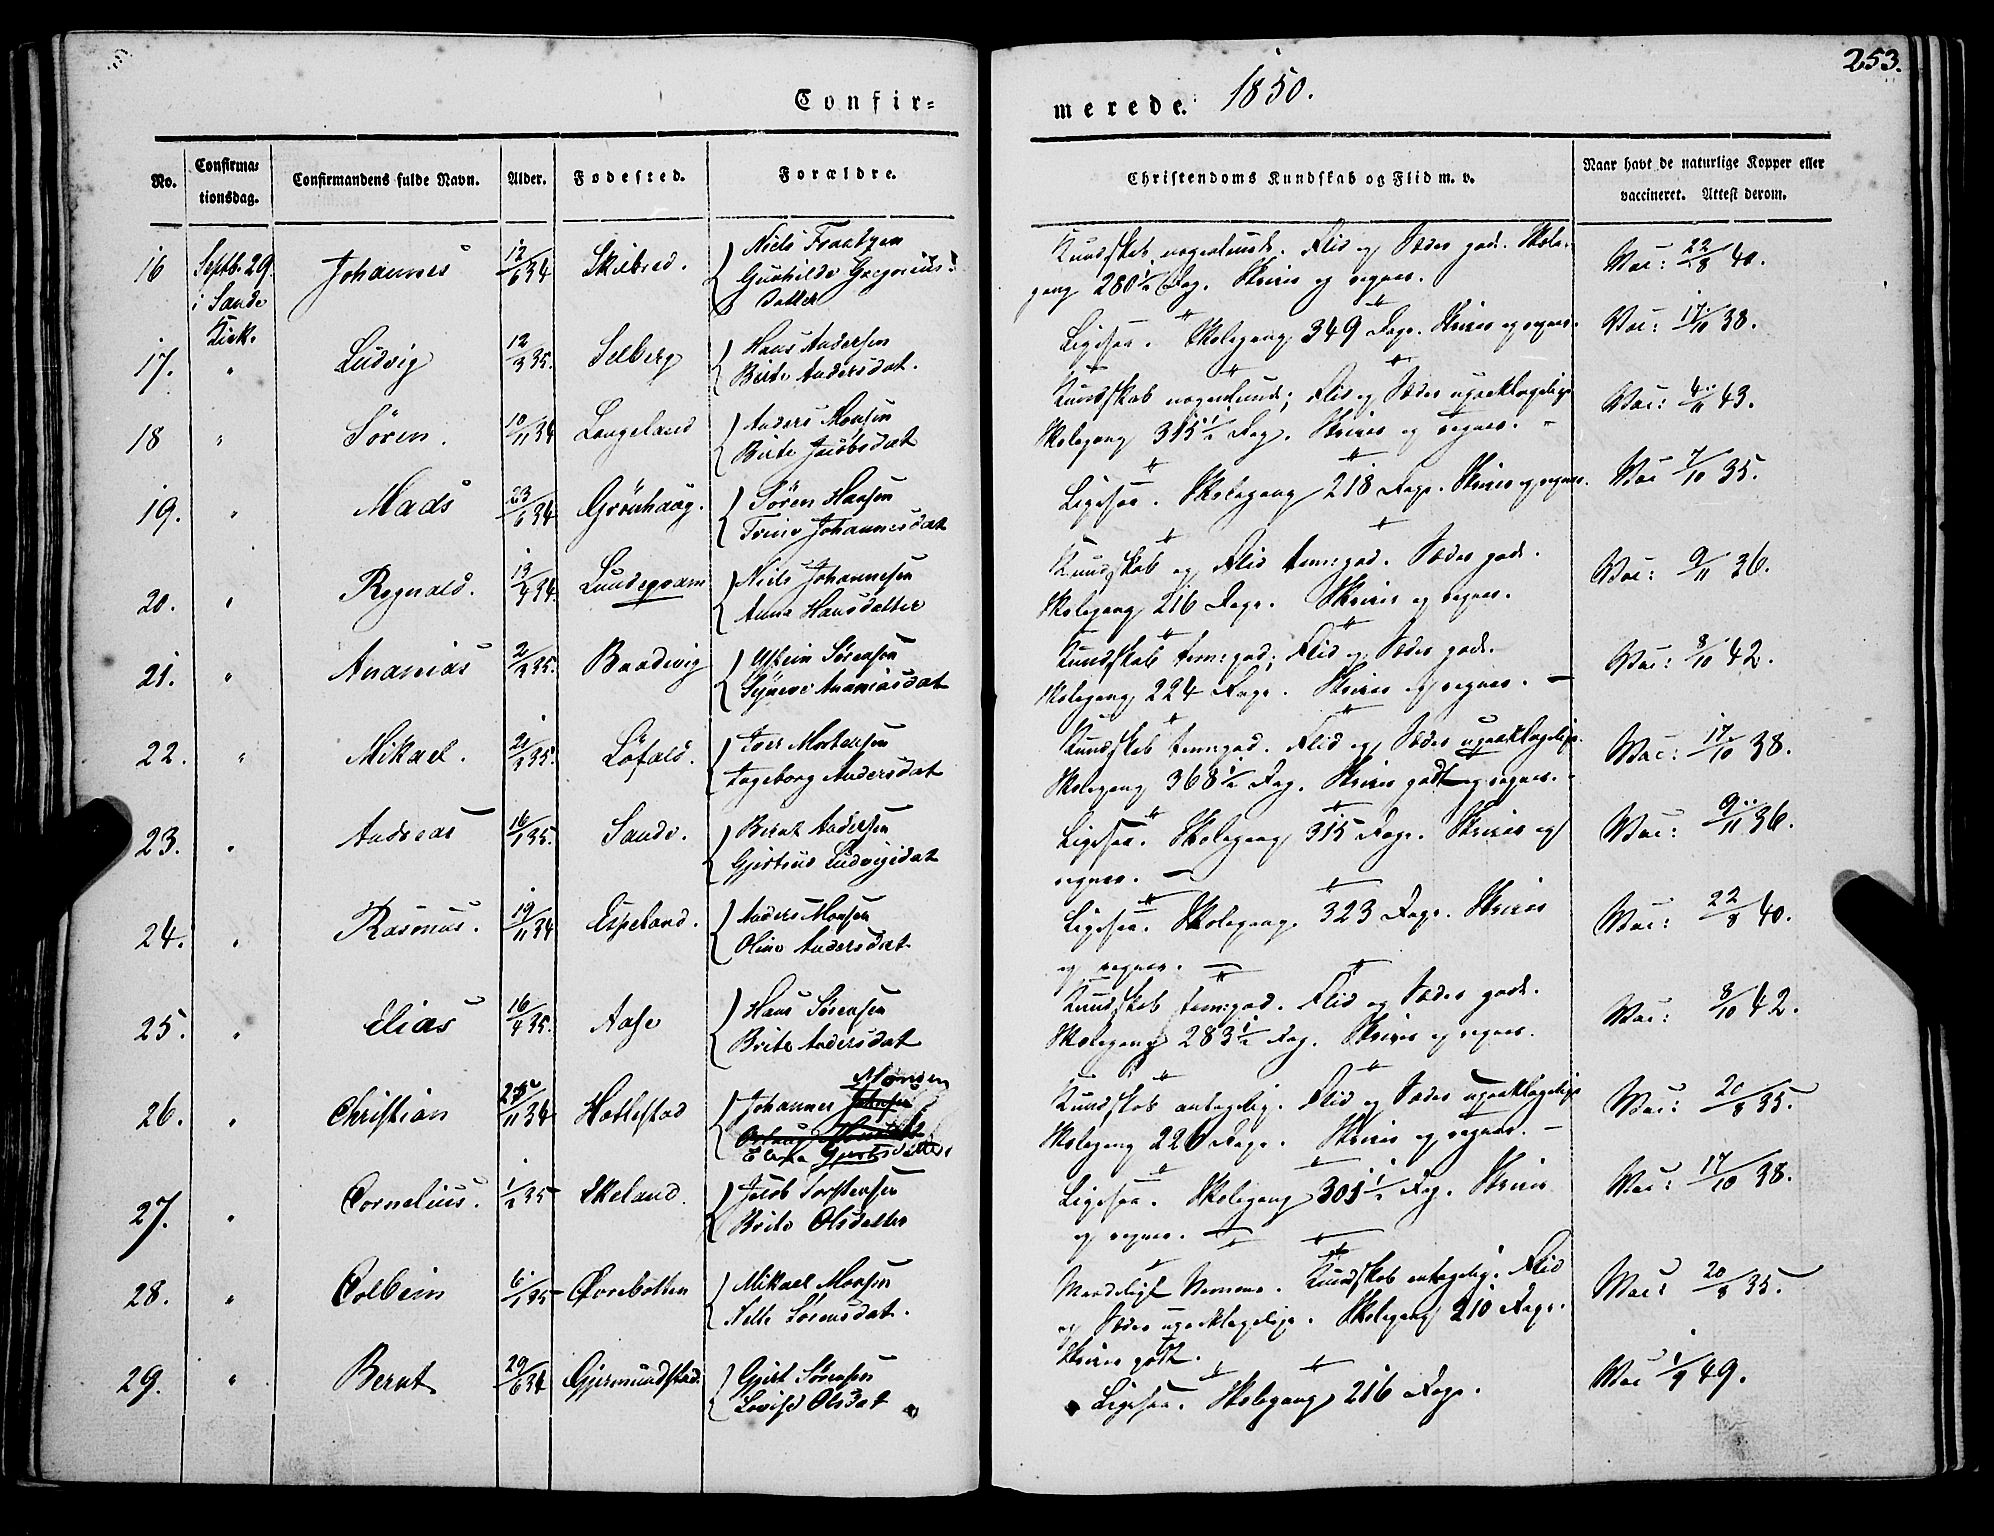 253.
Confir=
merede. 1850.
No. Confirma=tionsdag. Confirmandens fulde Navn. Alder. Fødested. Forældre. Christendoms Kundskab og Flid m. v. Naar havt de naturlige Kopper eller vaccineret. Attest derom.
16 Septb. 29. i Sande Kirk. Johannes 12/6 34 Skilbred. Niels
Gunhilde Gregorius=
datter
Kundskab nogenlunde. Flid og Sæder gode. Skole-
gang 280½ Dag. Skriver og regner.
Vac: 22/8 40.
17. " Ludvig 12/3 35. Selberg Hans Andersen
Brite Andersdat.
Ligesaa. Skolegang 349 Dage. Skriver og regner.
Vac: 17/10 38.
18 " Sören. 10/11 34 Langeland Anders Monsen
Brite Jacobsdat
Kundskab nogenlunde; Flid og Sæder upaaklagelige
Skolegang 315½ Dag. Skriver og regner. -
Vac: 4/11 43.
19. " Mads 23/6 34 Grönhaug. Sören Hansen
Trine Johannesdat
Ligesaa. Skolegang 218 Dage. Skriver og regner.
Vac 7/10 35.
20. " Rognald. 13/4 34. Lundeqvam Niels Johannesen
Anna Hansdatter
Kundskab og Flid temgod. Sæder gode.
Skolegang 216 Dage. Skriver og regner.
Vac: 9/11 36.
21. " Ananias 2/3 35. Baadvig Sörensen
Synneve Ananiasdat
Kundskab temgod; Flid og Sæder gode.
Skolegang 224 Dage. Skriver og regner. -
Vac: 8/10 42.
22. " Mikael. 21/3 35. Löfald. Iver Mortensen
Ingeborg Andersdat
Kundskab temgod. Flid og Sæder upaaklagelige.
Skolegang 368½ Dag. Skriver godt og regner. -
Vac: 17/10 38.
23. " Andreas 16/1 35. Sande. Bernt Andersen
Gjertrud Ludvigsdat
Ligesaa. Skolegang 315 Dage. Skriver og
regner. -
Vac: 9/11 36.
24. " Rasmus. 19/11 34 Espeland. Anders Monsen
Oline Andersdat
Ligesaa. Skolegang 323 Dage. Skriver
og regner. -
Vac: 22/8 40.
25. " Elias 16/4 35. Aase Hans Sörensen
Brite Andersdat
Kundskab temgod. Flid og Sæder gode.
Skolegang 283½ Dag. Skriver og regner.
Vac: 8/10 42.
26. " Christian 11 34 Hatlestad Johannes Monsen
Gjertsdatter
Kundskab antagelig. Flid og Sæder upaaklagelige
Skolegang 226 Dage. Skriver og regner. -
Vac: 20/8 35.
27. " Cornelius. 1/2 35 Skeland. Jacob Torstensen
Brite Olsdatter
Ligesaa. Skolegang 301½ Dag. Skriver
og regner. -
Vac: 17/10 38.
28. " Colbein 6/1 35 Övrebotten Mikael Monsen
Nille Sörensdat.
Maadeligt Nemme. Kundskab antagelig. Flid
og Sæder upaaklagelige. Skolegang 210 Dage.
Skriver godt.
Vac: 20/8 35.
29. " Bernt 29/6 34 Gjermundstad Gjert Sörensen
Lovise Olsdat
Ligesaa. Skolegang 216 Dage.
Vac 1/9 49.